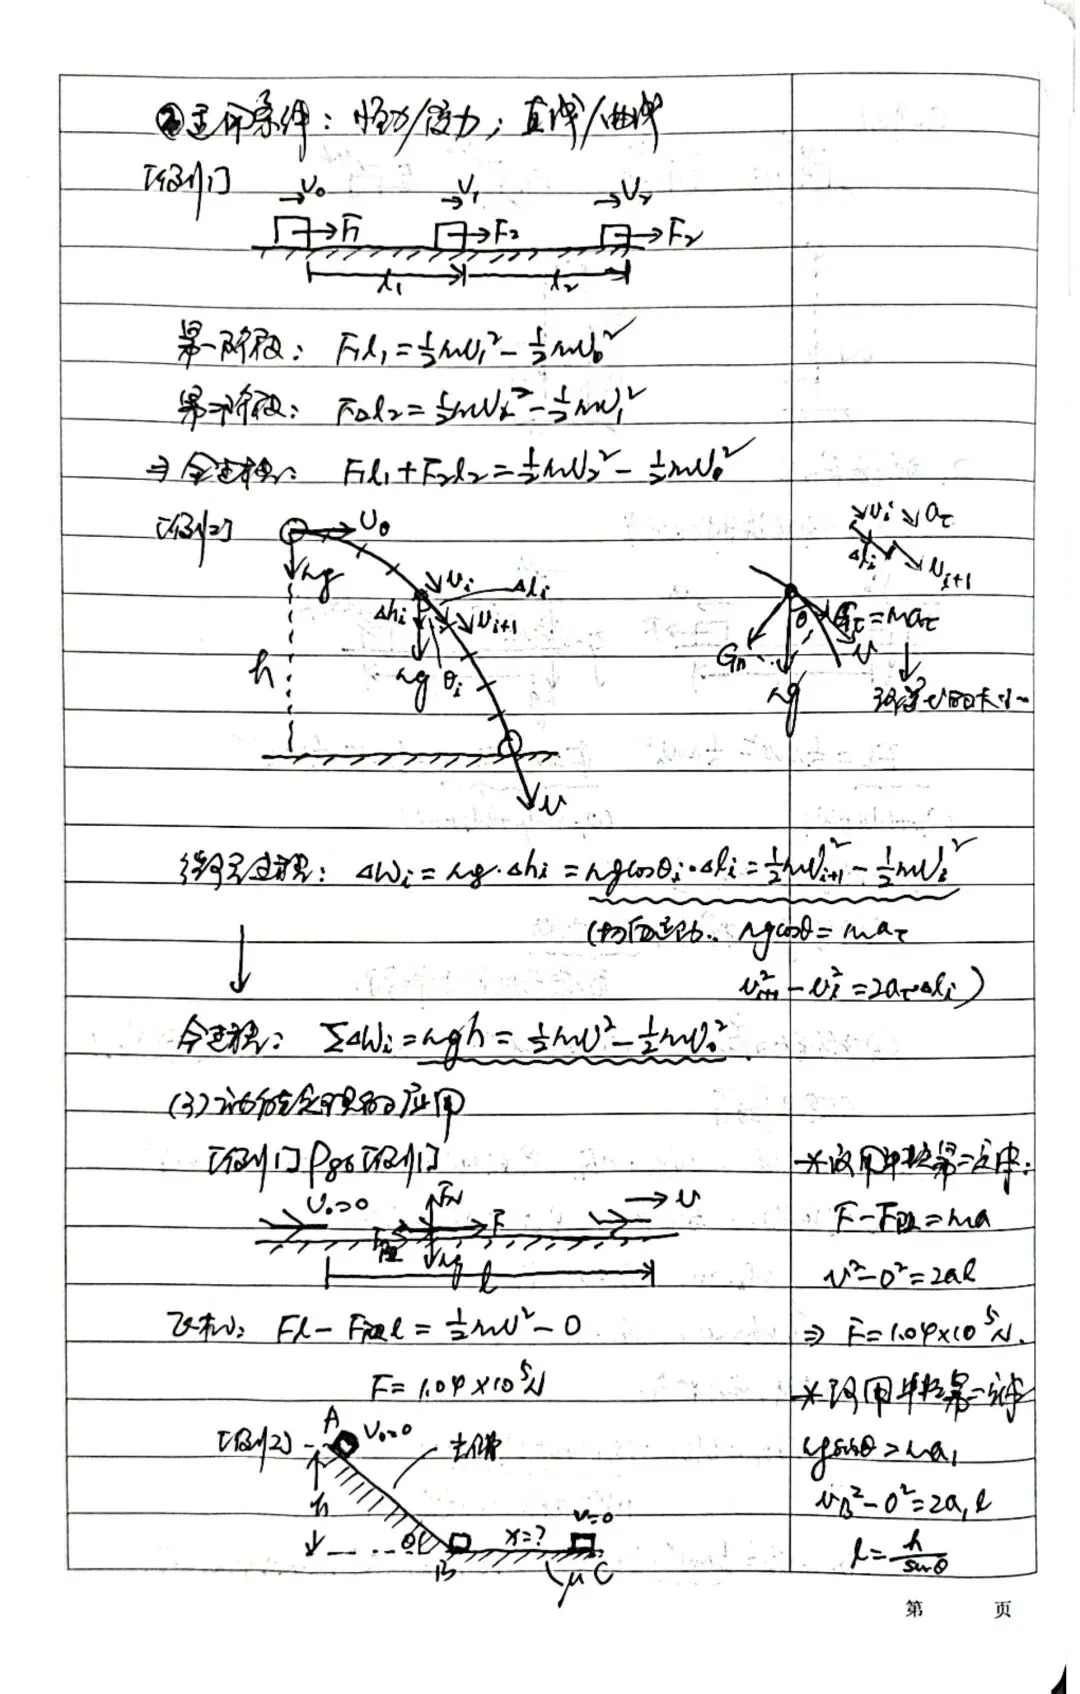 ②适用条件：恒力/变力；直线/曲线
[例1]
v₀ v₁ v₂
F₁ F₂ F₂
l₁ l₂
第一阶段：F₁l₁=½mv₁²-½mv₀²
第二阶段：F₂l₂=½mv₂²-½mv₁²
⇒全过程：F₁l₁+F₂l₂=½mv₂²-½mv₀²
[例2]
v₀
mg
h
vᵢ Δlᵢ
Δhᵢ vᵢ₊₁
mg θᵢ
v
vᵢ a_τ
Δlᵢ vᵢ₊₁
θ G_τ=ma_τ
Gₙ v
mg
微元过程：ΔWᵢ=mg·Δhᵢ=mgcosθᵢ·Δlᵢ=½mvᵢ₊₁²-½mvᵢ²
mgcosθ=ma_τ
vᵢ₊₁²-vᵢ²=2a_τΔlᵢ)
全过程：ΣΔWᵢ=mgh=½mv²-½mv₀²
(3)动能定理的应用
[例1]P86[例1]
v₀=0 F_N v
F阻 F
mg
l
飞机：Fl-F阻l=½mv²-0
F=1.04×10⁵N
*设用牛顿第二定律：
F-F阻=ma
v²-0²=2al
⇒F=1.04×10⁵N.
[例2]
A v₀=0
光滑
h
θ
B x=? v=0
μ C
*设用牛顿第二定律
mgsinθ=ma₁
v_B²-0²=2a₁l
l=h/sinθ
第 页